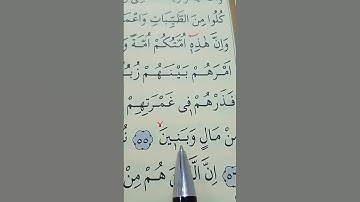 كُلُوا مِنَ الطَّيِّبَاتِ وَاعْمَ
وَاِنَّ هٰذِهٖٓ اُمَّتُكُمْ اُمَّةً وَ
اَمْرَهُمْ بَيْنَهُمْ زُبُ
فَذَرْهُمْ فٖى غَمْرَتِهِمْ
مِنْ مَالٍ وَبَنٖينَ ﴿٥٥﴾ نُ
اِنَّ الَّ هُمْ مِنْ